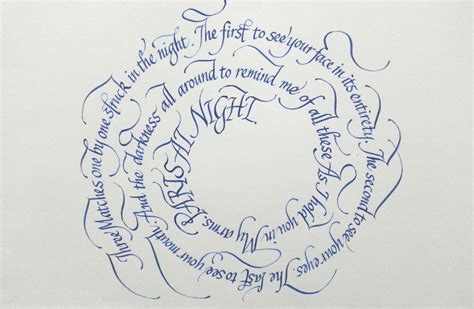 Three Matches one by one struck in the night. The first to see your face in its entirety. The second to see your eyes. The last to see your mouth. And the darkness all around to remind me of all these As I hold you in My arms.
PARIS AT NIGHT